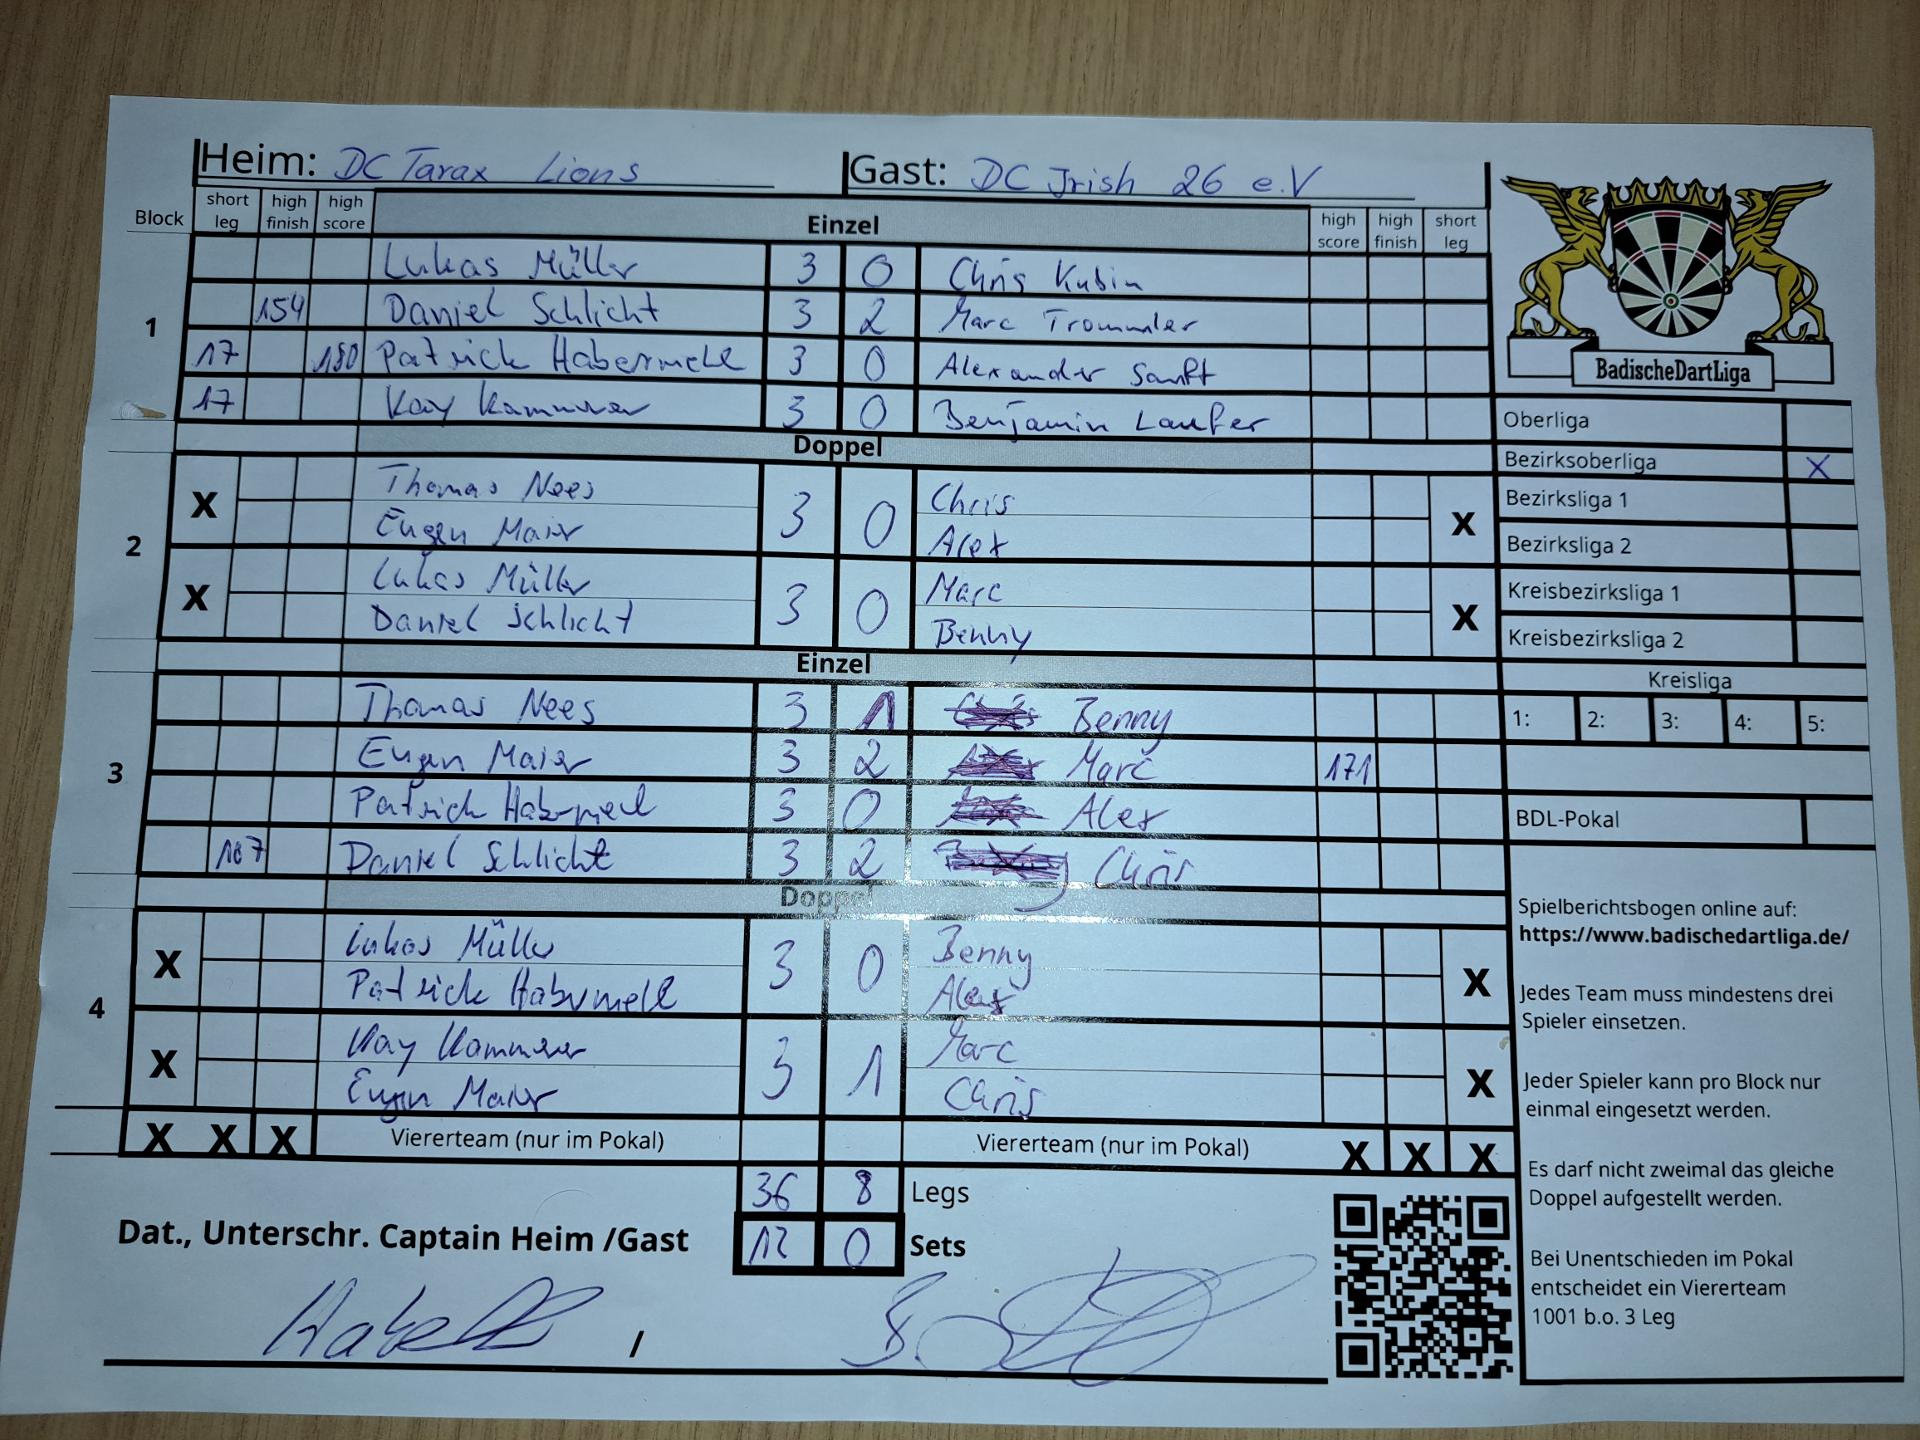 Heim: DC Tarax Lions Gast: DC Irish 26 e.V
Block short leg high finish high score Einzel high score high finish short leg
1
Lukas Müller 3 0 Chris Kubin
154 Daniel Schlicht 3 2 Marc Trommler
17 180 Patrick Habermehl 3 0 Alexander Sanft
17 Kay Kammerer 3 0 Benjamin Laufer
Doppel
2
X Thomas Nees 3 0 Chris X
Eugen Maier Alex
X Lukas Müller 3 0 Marc X
Daniel Schlicht Benny
Einzel
3
Thomas Nees 3 1 Benny
Eugen Maier 3 2 Marc 171
Patrick Habermehl 3 0 Alex
107 Daniel Schlicht 3 2 Chris
Doppel
4
X Lukas Müller 3 0 Benny X
Patrick Habermehl Alex
X Kay Kammerer 3 1 Marc X
Eugen Maier Chris
X X X Viererteam (nur im Pokal) Viererteam (nur im Pokal) X X X
36 8 Legs
12 0 Sets
Dat., Unterschr. Captain Heim /Gast
/
BadischeDartLiga
Oberliga
Bezirksoberliga X
Bezirksliga 1
Bezirksliga 2
Kreisbezirksliga 1
Kreisbezirksliga 2
Kreisliga
1: 2: 3: 4: 5:
BDL-Pokal
Spielberichtsbogen online auf:
https://www.badischedartliga.de/
Jedes Team muss mindestens drei
Spieler einsetzen.
Jeder Spieler kann pro Block nur
einmal eingesetzt werden.
Es darf nicht zweimal das gleiche
Doppel aufgestellt werden.
Bei Unentschieden im Pokal
entscheidet ein Viererteam
1001 b.o. 3 Leg